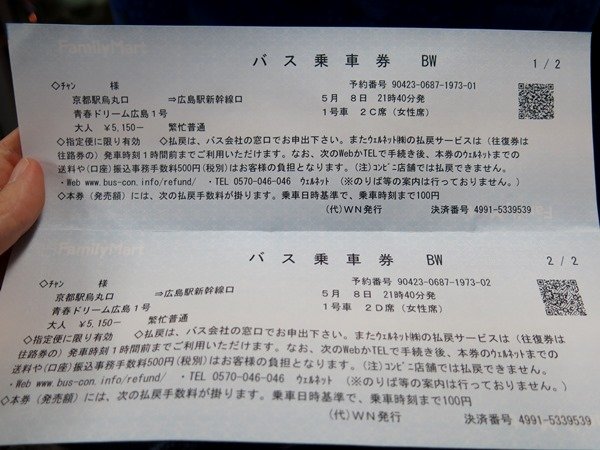 FamilyMart
バス乗車券 BW 1/2
◇チャン 様 予約番号 90423-0687-1973-01
京都駅烏丸口 ⇒広島駅新幹線口 5月 8日 21時40分発
青春ドリーム広島1号 1号車 2C席(女性席)
大人 ¥5,150― 繁忙普通
◇指定便に限り有効 ◇払戻は、バス会社の窓口でお申出下さい。またウェルネット㈱の払戻サービスは(往復券は
往路券の)発車時刻1時間前までご利用いただけます。なお、次のWebかTELで手続き後、本券のウェルネットまでの
送料や(口座)振込事務手数料500円(税別)はお客様の負担となります。(注)コンビニ店舗では払戻できません。
・Web www.bus-con.info/refund/ ・TEL 0570-046-046 ウェルネット (※のりば等の案内は行っておりません。)
◇本券(発売額)には、次の払戻手数料が掛ります。乗車日時基準で、乗車時刻まで100円
(代)WN発行 決済番号 4991-5339539
FamilyMart
バス乗車券 BW 2/2
◇チャン 様 予約番号 90423-0687-1973-02
京都駅烏丸口 ⇒広島駅新幹線口 5月 8日 21時40分発
青春ドリーム広島1号 1号車 2D席(女性席)
大人 ¥5,150― 繁忙普通
◇指定便に限り有効 ◇払戻は、バス会社の窓口でお申出下さい。またウェルネット㈱の払戻サービスは(往復券は
往路券の)発車時刻1時間前までご利用いただけます。なお、次のWebかTELで手続き後、本券のウェルネットまでの
送料や(口座)振込事務手数料500円(税別)はお客様の負担となります。(注)コンビニ店舗では払戻できません。
・Web www.bus-con.info/refund/ ・TEL 0570-046-046 ウェルネット (※のりば等の案内は行っておりません。)
◇本券(発売額)には、次の払戻手数料が掛ります。乗車日時基準で、乗車時刻まで100円
(代)WN発行 決済番号 4991-5339539